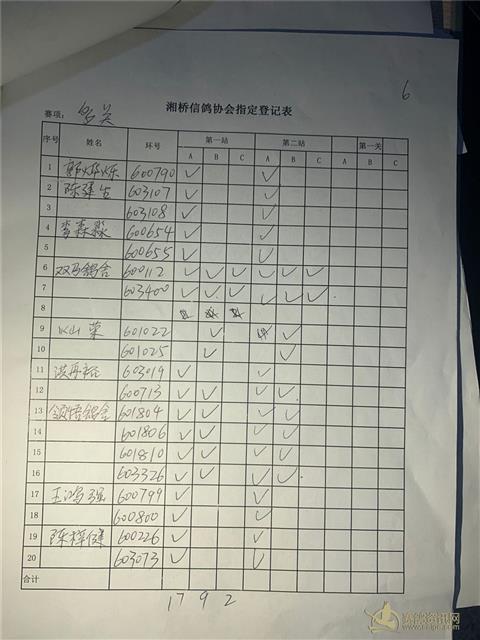 6
湘桥信鸽协会指定登记表
赛项：
序号 姓名 环号 第一站 第二站 第一关
A B C A B C A B C
1 600790 ✓ ✓
2 陈建生 603107 ✓ ✓
3 603108 ✓ ✓
4 李森淼 600654 ✓ ✓
5 600655 ✓ ✓
6 双马鸽舍 600112 ✓ ✓ ✓ ✓ ✓ ✓
7 603400 ✓ ✓ ✓ ✓ ✓ ✓
8
9 601022 ✓ ✓
10 601025 ✓ ✓
11 603019 ✓ ✓
12 600713 ✓ ✓ ✓ ✓
13 601804 ✓ ✓ ✓ ✓
14 601806 ✓ ✓ ✓ ✓
15 601810 ✓ ✓ ✓ ✓
16 603326 ✓ ✓ ✓ ✓
17 王鸿强 600799 ✓ ✓
18 600800 ✓ ✓
19 陈梓健 600226 ✓ ✓
20 603073 ✓ ✓
合计
17 9 2
赛鸽资讯网